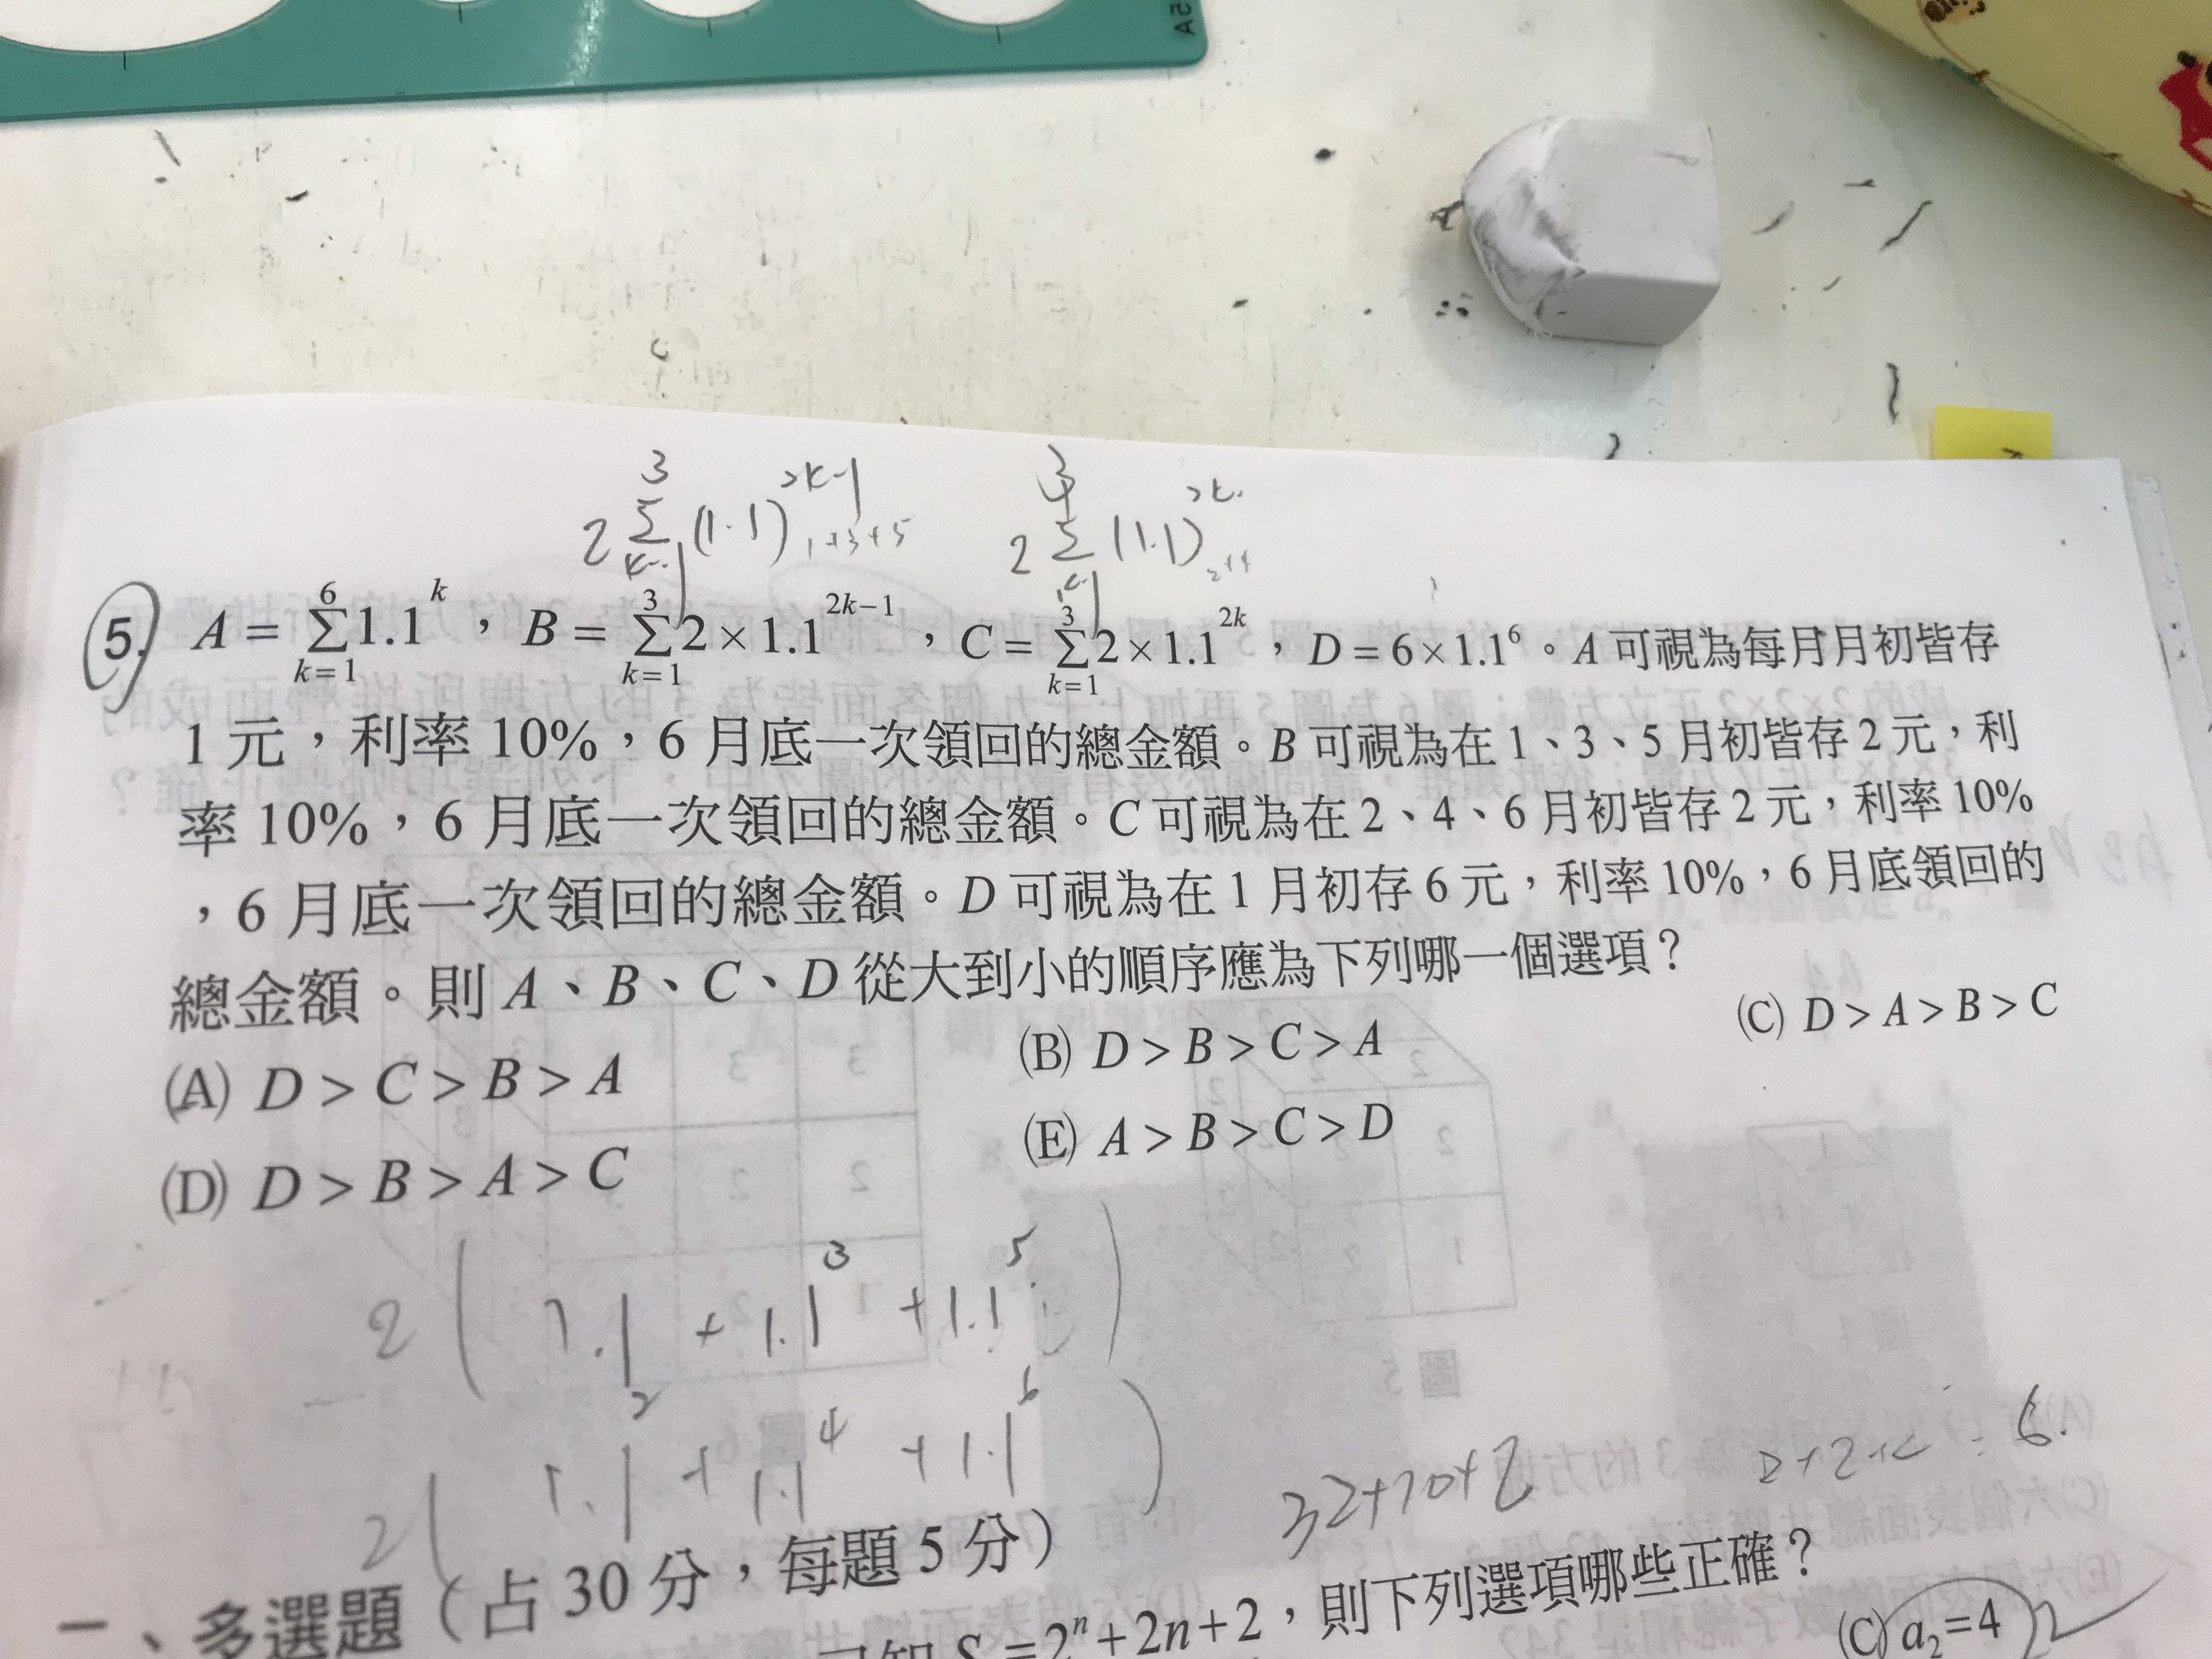 5A
3
2 Σ (1.1) 2k-1
1+3+5
k=1
3
2 Σ (1.1) 2k
2+4
k=1
5. A = Σ_{k=1}^{6} 1.1^k，B = Σ_{k=1}^{3} 2×1.1^{2k−1}，C = Σ_{k=1}^{3} 2×1.1^{2k}，D = 6×1.1^6。A 可視為每月月初皆存
1 元，利率 10%，6 月底一次領回的總金額。B 可視為在 1、3、5 月初皆存 2 元，利
率 10%，6 月底一次領回的總金額。C 可視為在 2、4、6 月初皆存 2 元，利率 10%
，6 月底一次領回的總金額。D 可視為在 1 月初存 6 元，利率 10%，6 月底領回的
總金額。則 A、B、C、D 從大到小的順序應為下列哪一個選項？
(A) D > C > B > A (B) D > B > C > A (C) D > A > B > C
(D) D > B > A > C (E) A > B > C > D
2 ( 1.1 + 1.1^3 + 1.1^5 )
2 ( 1.1^2 + 1.1^4 + 1.1^6 )
32+10+2
2+2+2=6.
、多選題（占 30 分，每題 5 分）
=2^n+2n+2，則下列選項哪些正確？
(C) a_2=4 2